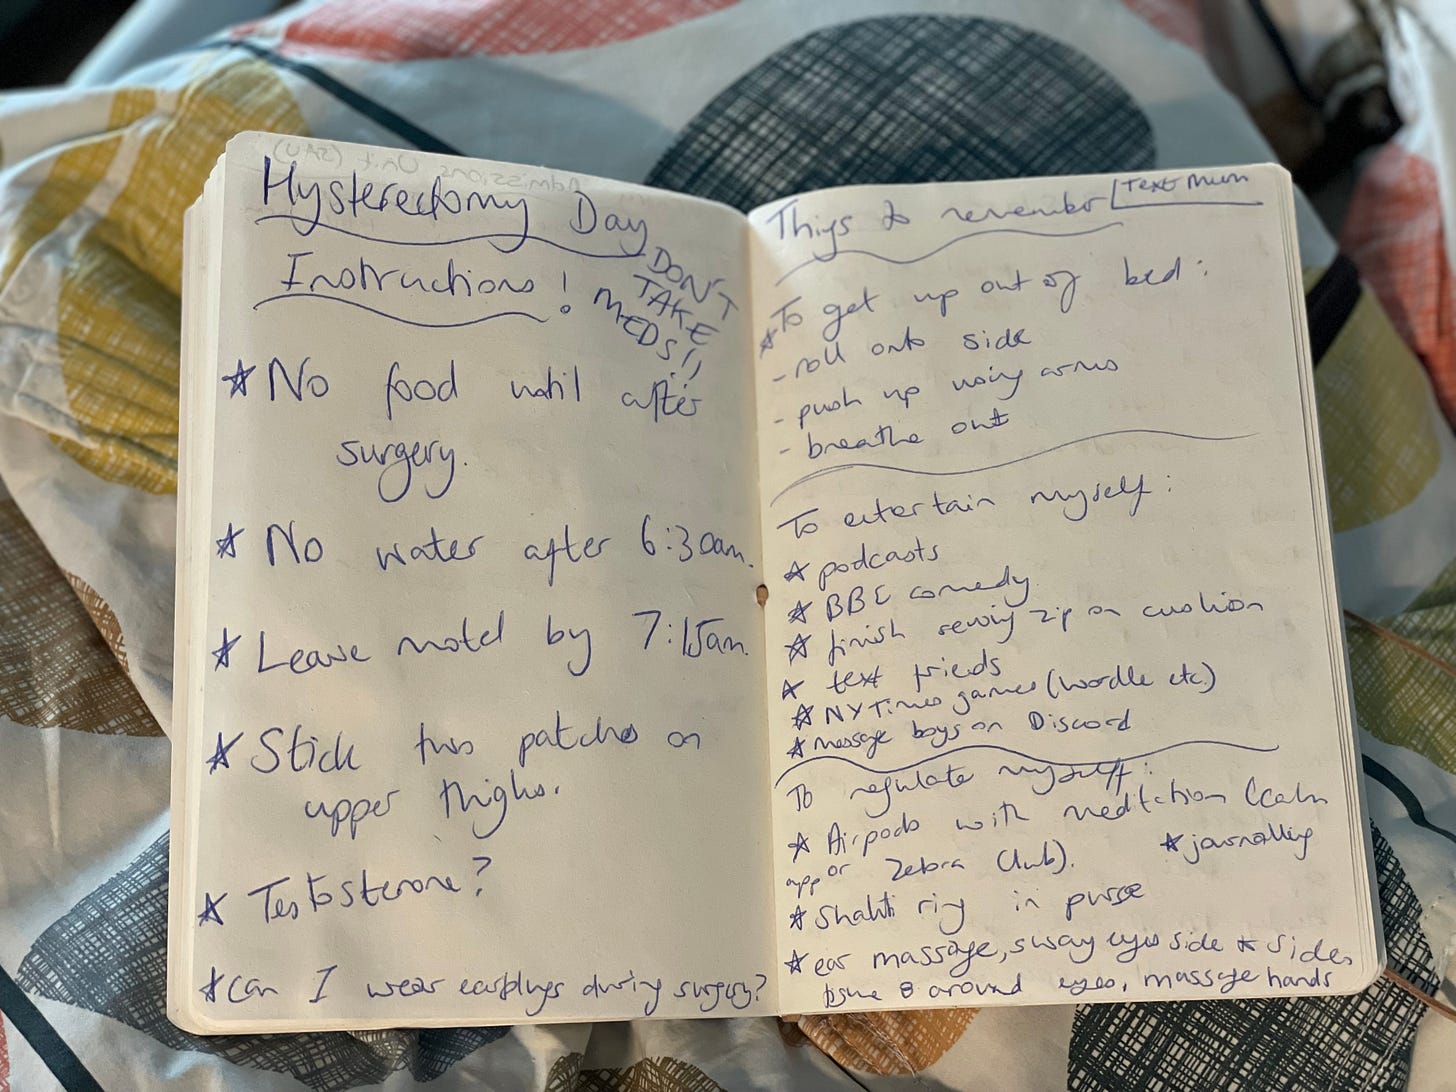 Admissions Unit (SAU)
Hysterectomy Day
Instructions!
DON'T
TAKE
MEDS!!
* No food until after
surgery.
* No water after 6:30am.
* Leave motel by 7:15am.
* Stick two patches on
upper thighs.
* Testosterone?
* Can I wear earplugs during surgery?
Things to remember
Text Mum
* To get up out of bed:
- roll onto side
- push up using arms
- breathe out
To entertain myself:
* podcasts
* BBC comedy
* finish sewing zip on cushion
* text friends
* NY Times games (Wordle etc.)
* message boys on Discord
To regulate myself:
* Airpods with meditation (calm
app or Zebra Club).
* journalling
* Shakti ring in purse
* ear massage, sway eyes side to side,
8 around eyes, massage hands